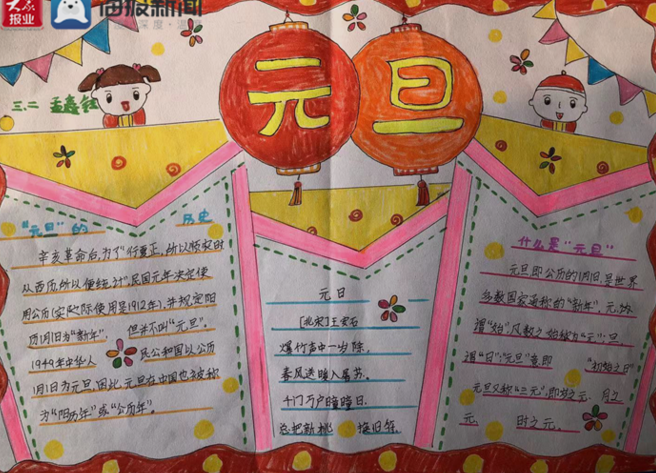 大众报业
海报新闻
元旦
三.二
"元旦"的历史
辛亥革命后,为了"行夏正,所以顺农时
从西历,所以便统计",民国元年决定使
用公历(实际使用是1912年),并规定阳
历1月1日为"新年",但并不叫"元旦"。
1949年中华人民公和国以公历
1月1日为元旦,因此元旦在中国也被称
为"阳历年"或"公历年"。
元日
[北宋]王安石
爆竹声中一岁除,
春风送暖入屠苏。
千门万户曈曈日,
总把新桃换旧符。
什么是"元旦"
元旦即公历的1月1日,是世界
多数国家通称的"新年"。元,
谓"始",凡数之始称为"元";旦,
谓"日";"元旦"意即"初始之日"
元旦又称"三元",即岁之元、月之
元、时之元。